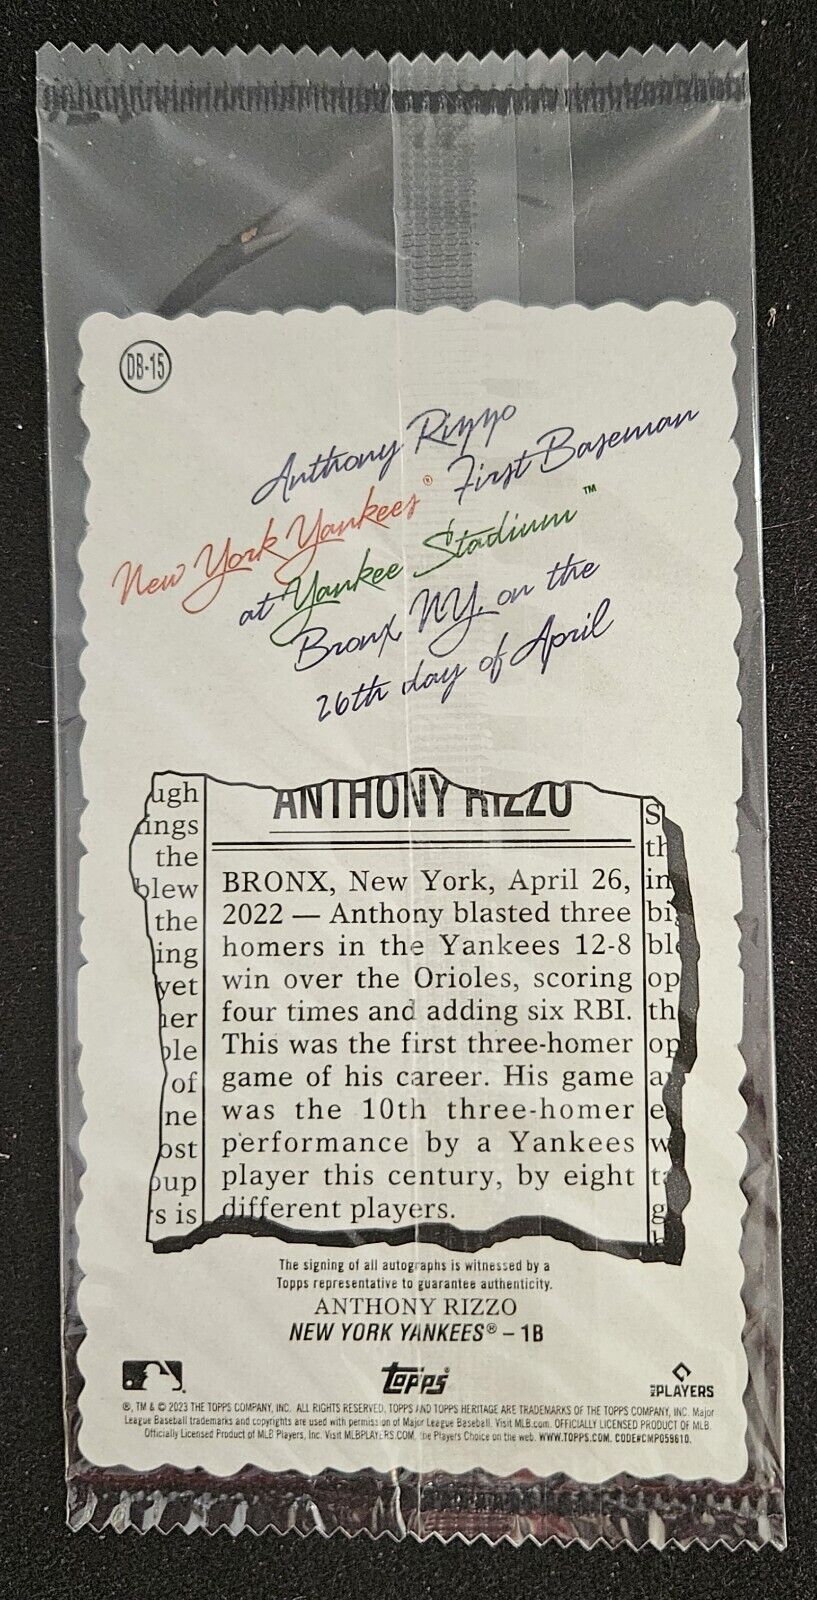 DB-15
Anthony Rizzo
New York Yankees® First Baseman
at Yankee Stadium™
Bronx, NY, on the
26th day of April
ANTHONY RIZZO
ugh
ings
the
blew
the
ing
yet
her
ple
of
ne
ost
oup
s is
BRONX, New York, April 26,
2022 — Anthony blasted three
homers in the Yankees 12-8
win over the Orioles, scoring
four times and adding six RBI.
This was the first three-homer
game of his career. His game
was the 10th three-homer
performance by a Yankees
player this century, by eight
different players.
S
th
in
big
ble
op
th
op
a
e
w
t
g
h
The signing of all autographs is witnessed by a
Topps representative to guarantee authenticity.
ANTHONY RIZZO
NEW YORK YANKEES® – 1B
topps®
MLB PLAYERS
®, TM & © 2023 THE TOPPS COMPANY, INC. ALL RIGHTS RESERVED. TOPPS AND TOPPS HERITAGE ARE TRADEMARKS OF THE TOPPS COMPANY, INC. Major
League Baseball trademarks and copyrights are used with permission of Major League Baseball. Visit MLB.com. OFFICIALLY LICENSED PRODUCT OF MLB
Officially Licensed Product of MLB Players, Inc. Visit MLBPLAYERS.COM, the Players Choice on the web. WWW.TOPPS.COM. CODE#CMP059610.